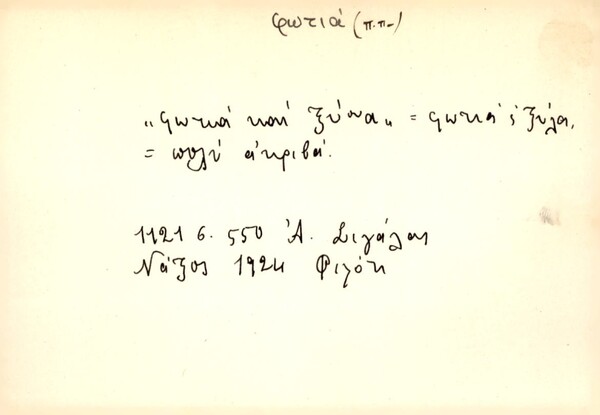 φωτιά (π.π-)
"φωτιά καί ξύνα" = φωτιά κ' ξύλα,
= πολύ ἀκριβά.
1121 σ. 550 Ἀ. Σιγάλας
Νάξος 1924 Φιλότι